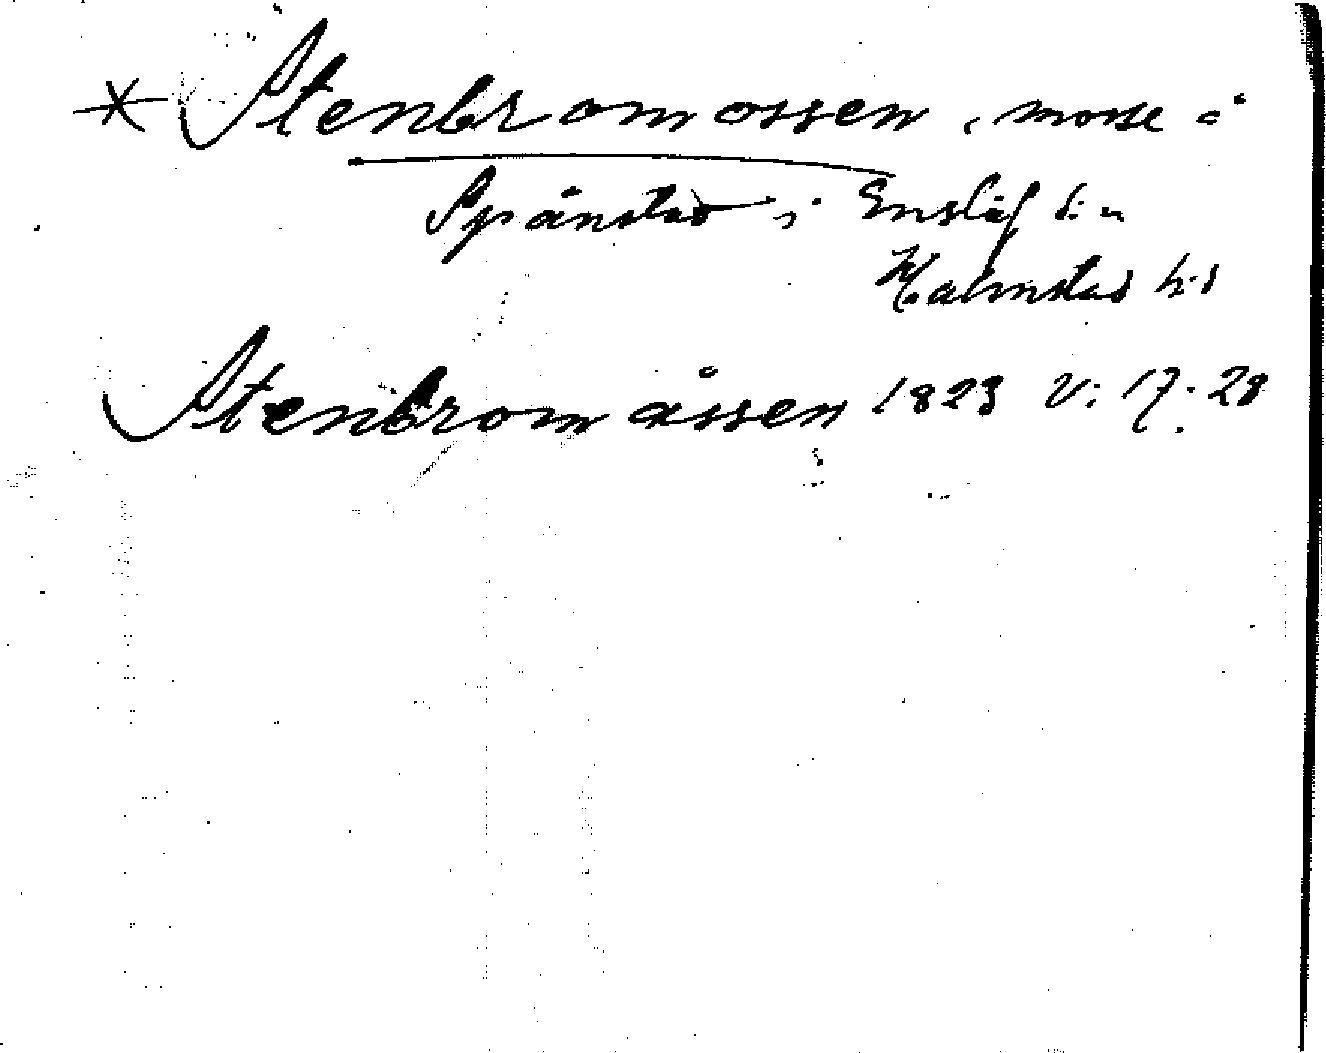 * Stenbromossen, mosse å
Spånstad i Enslöf s:n
Halmstad h:d
Stenbromåssen 1823 V: 17. 28